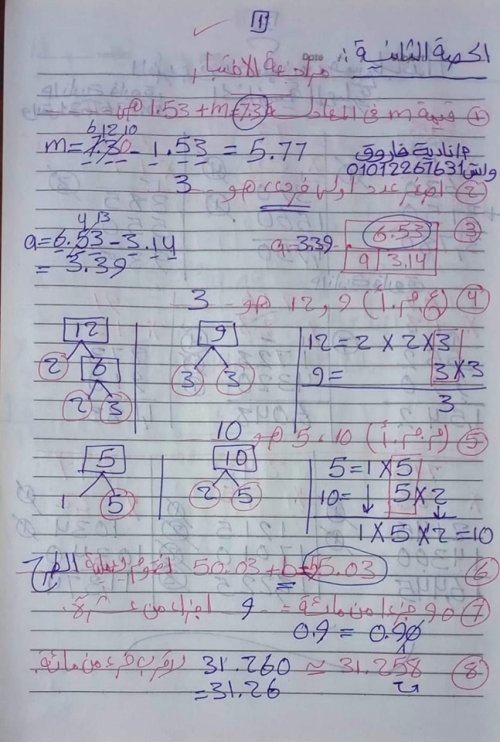 1
الحصة الثانية :
مراجعة الاختبار
① قيمة m فى المعادلة 1.53 + m = 7.3 هى
m = 7.30 - 1.53 = 5.77
6 12 10
م/نادية فاروق
واتس 01012267631
② أصغر عدد أولى فردى هو 3
③ 6.53
a 3.14
a = 3.39
4 13
a = 6.53 - 3.14
= 3.39
④ (ع.م.أ) 9 ، 12 هو 3
12
2 6
2 3
9
3 3
12 = 2 × 2 × 3
9 = 3 × 3
3
⑤ (م.م.أ) 10 ، 5 هو 10
5
1 5
10
2 5
5 = 1 × 5
10 = 5 × 2
1 × 5 × 2 = 10
⑥ 50.03 + b = 5.03 الطرح
⑦ 90 جزءا من مائة = 9 اجزاء من عشرة
0.9 = 0.90
⑧ 31.258 ≃ 31.260 لاقرب جزء من مائة
= 31.26